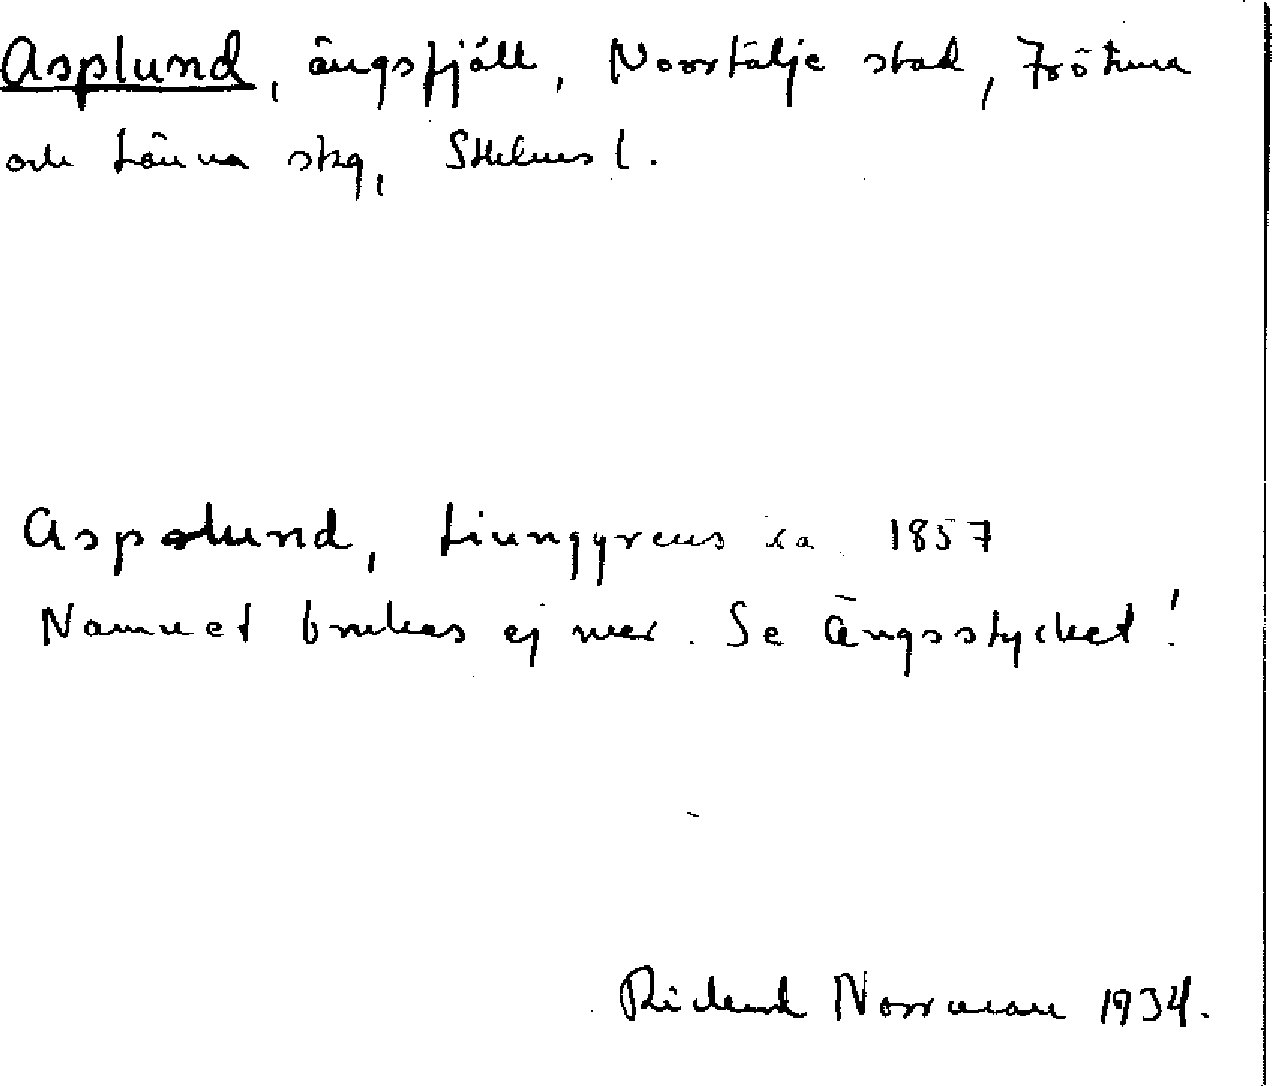 Asplund, ängsfjäll, Norrtälje stad, Frötuna
och Länna skg, Sthlms l.
Aspelund, Liunggrens ka 1857
Namnet brukas ej mer. Se Ängsstycket!
Rickard Norrman 1934.